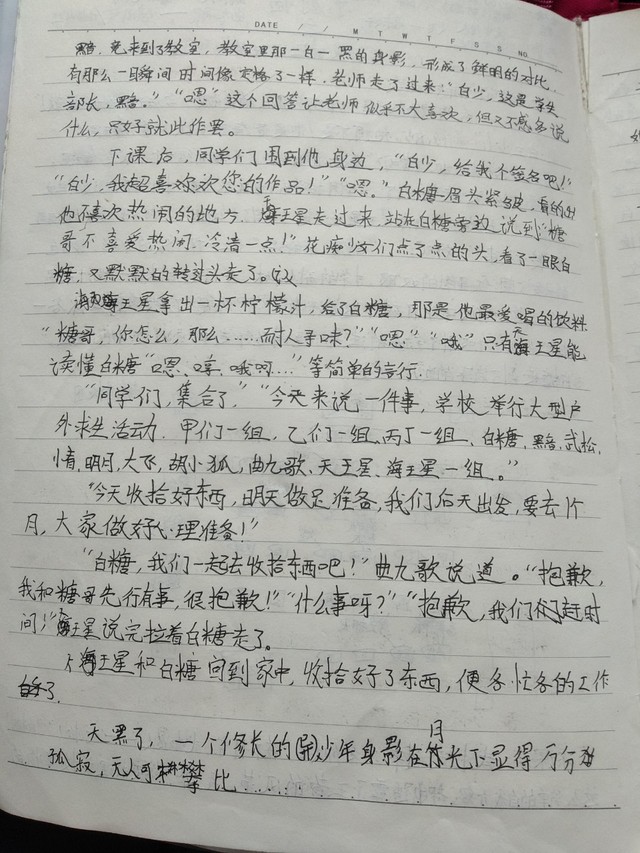 DATE / / M T W T F S S NO.
黯，竟来到了教室，教室里那一白一黑的身影，形成了鲜明的对比，
有那么一瞬间时间像定格了一样，老师走了过来："白少，这是学生
部长，黯。""嗯"这个回答让老师似乎不大喜欢，但又不感多说
什么，只好就此作罢。
下课后，同学们围到他身边，"白少，给我个签名吧！"
"白少，我超喜欢您的作品！""嗯。"白糖眉头紧皱，看的出
他不喜欢热闹的地方，天王星走过来，站在白糖旁边说到"糖
哥不喜爱热闹，冷清一点！"花痴少女们点了点的头，看了一眼白
糖，又默默的转过头走了。
天王星拿出一杯柠檬汁，给了白糖，那是他最爱喝的饮料
"糖哥，你怎么，那么……耐人寻味？""嗯""哦"只有天王星能
读懂白糖"嗯、嗐、哦啊…"等简单的言行.
"同学们，集合了，""今天来说一件事，学校举行大型户
外求生活动，甲们一组，乙们一组、丙丁一组、白糖，黯，武松，
情，明月，大飞，胡小狐，曲九歌、天王星、海王星一组。"
"今天收拾好东西，明天做足准备，我们后天出发，要去1个
月，大家做好心理准备！"
"白糖，我们一起去收拾东西吧！"曲九歌说道。"抱歉，
我和糖哥先行有事，很抱歉！""什么事呀？""抱歉，我们赶时
间！"天王星说完拉着白糖走了。
天王星和白糖回到家中，收拾好了东西，便各忙各的工作
去了.
天黑了，一个修长的少年身影在月光下显得万分
孤寂，无人可攀比